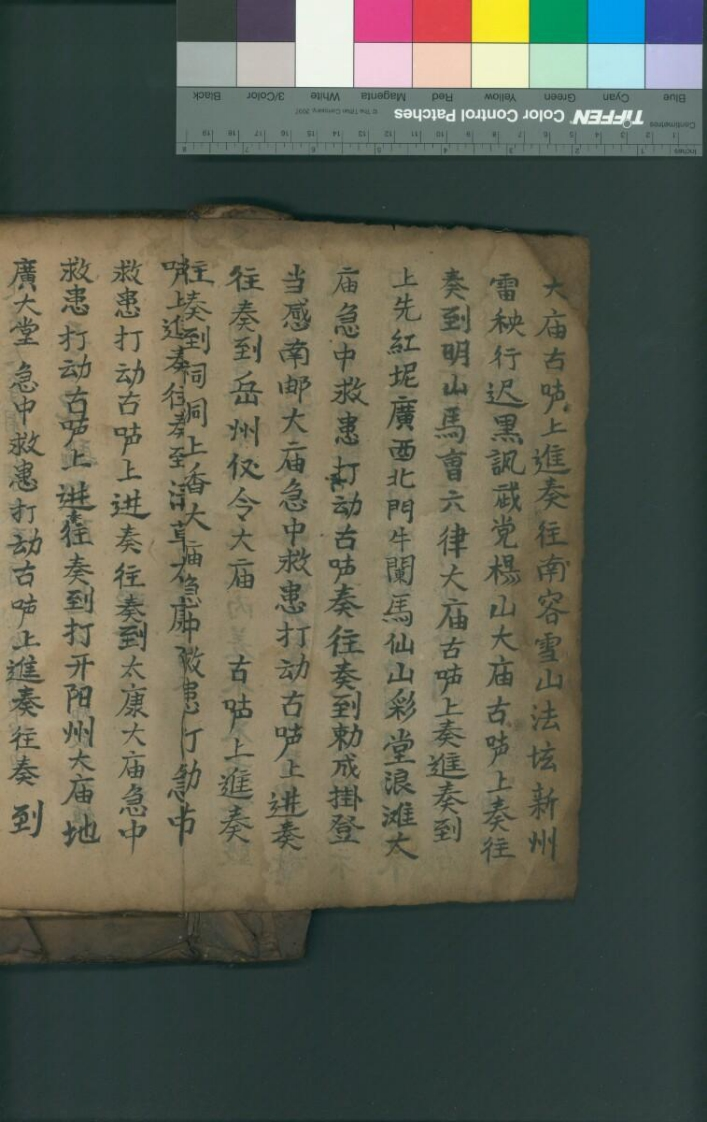 大庙古呫上進奏往南容雪山法坛新州
雷秧行迟黑訊戚党楊山大庙古呫上奏往
奏到明山馬曹六律大庙古呫上奏進奏到
上先紅坭廣西北門牛闌馬仙山彩堂浪滩大
庙急中救患打动古呫奏往奏到勅成掛登
当感南邮大庙急中救患打动古呫上进奏
往奏到岳州仪令大庙 古呫上進奏
往奏到祠洞上香大庙急中救患打动古
呫上進奏往奏到
救患打动古呫上进奏往奏到太康大庙急中
救患打动古呫上进往奏到打开阳州大庙地
廣大堂 急中救患打动古呫上進奏往奏到
Blue Cyan Green Yellow Red Magenta White 3/Color Black
TIFFEN Color Control Patches © The Tiffen Company, 2007
Centimetres 1 2 3 4 5 6 7 8 9 10 11 12 13 14 15 16 17 18 19
Inches 1 2 3 4 5 6 7 8